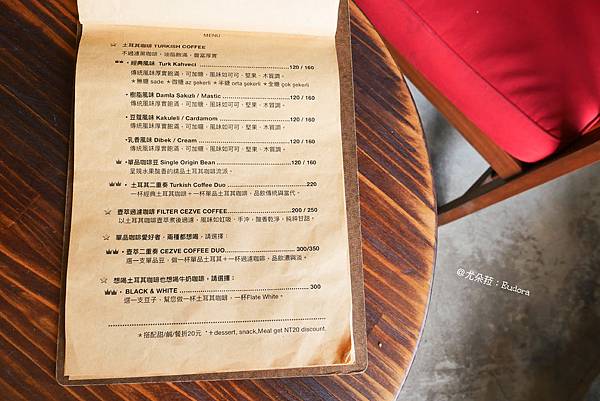 MENU
☆ 土耳其咖啡 TURKISH COFFEE
不過濾黑咖啡，油脂飽滿，豐富厚實
• 經典風味 Turk Kahveci ......120 / 160
傳統風味厚實飽滿，可加糖，風味如可可、堅果、木質調。
★無糖 sade ★微糖 az şekerli ★半糖 orta şekerli ★全糖 çok şekerli
• 樹脂風味 Damla Sakızlı / Mastic ......120 / 160
傳統風味厚實飽滿，可加糖，風味如可可、堅果、木質調。
• 豆蔻風味 Kakuleli / Cardamom ......120 / 160
傳統風味厚實飽滿，可加糖，風味如可可、堅果、木質調。
•乳香風味 Dibek / Cream ......120 / 160
傳統風味厚實飽滿，可加糖，風味如可可、堅果、木質調。
•單品咖啡豆 Single Origin Bean ......120 / 160
呈現水果酸香的精品土耳其咖啡流派。
• 土耳其二重奏 Turkish Coffee Duo ......220
一杯經典土耳其咖啡＋一杯單品土耳其咖啡，品飲傳統與當代。
☆ 壺萃過濾咖啡 FILTER CEZVE COFFEE......200 / 250
以土耳其咖啡壺萃煮後過濾，風味如虹吸、手沖，酸香乾淨，純粹甘甜。
☆ 單品咖啡愛好者，兩種都想喝，請選擇：
• 壺萃二重奏 CEZVE COFFEE DUO......300/350
選一支單品豆，做一杯單品土耳其＋一杯過濾咖啡，品飲濃與淡。
☆ 想喝土耳其咖啡也想喝牛奶咖啡，請選擇：
• BLACK & WHITE ......300
選一支豆子，幫您做一杯土耳其咖啡，一杯Flate White。
★搭配甜/鹹/餐折20元 *＋dessert, snack,Meal get NT20 discount.
@尤朵菈；Eudora